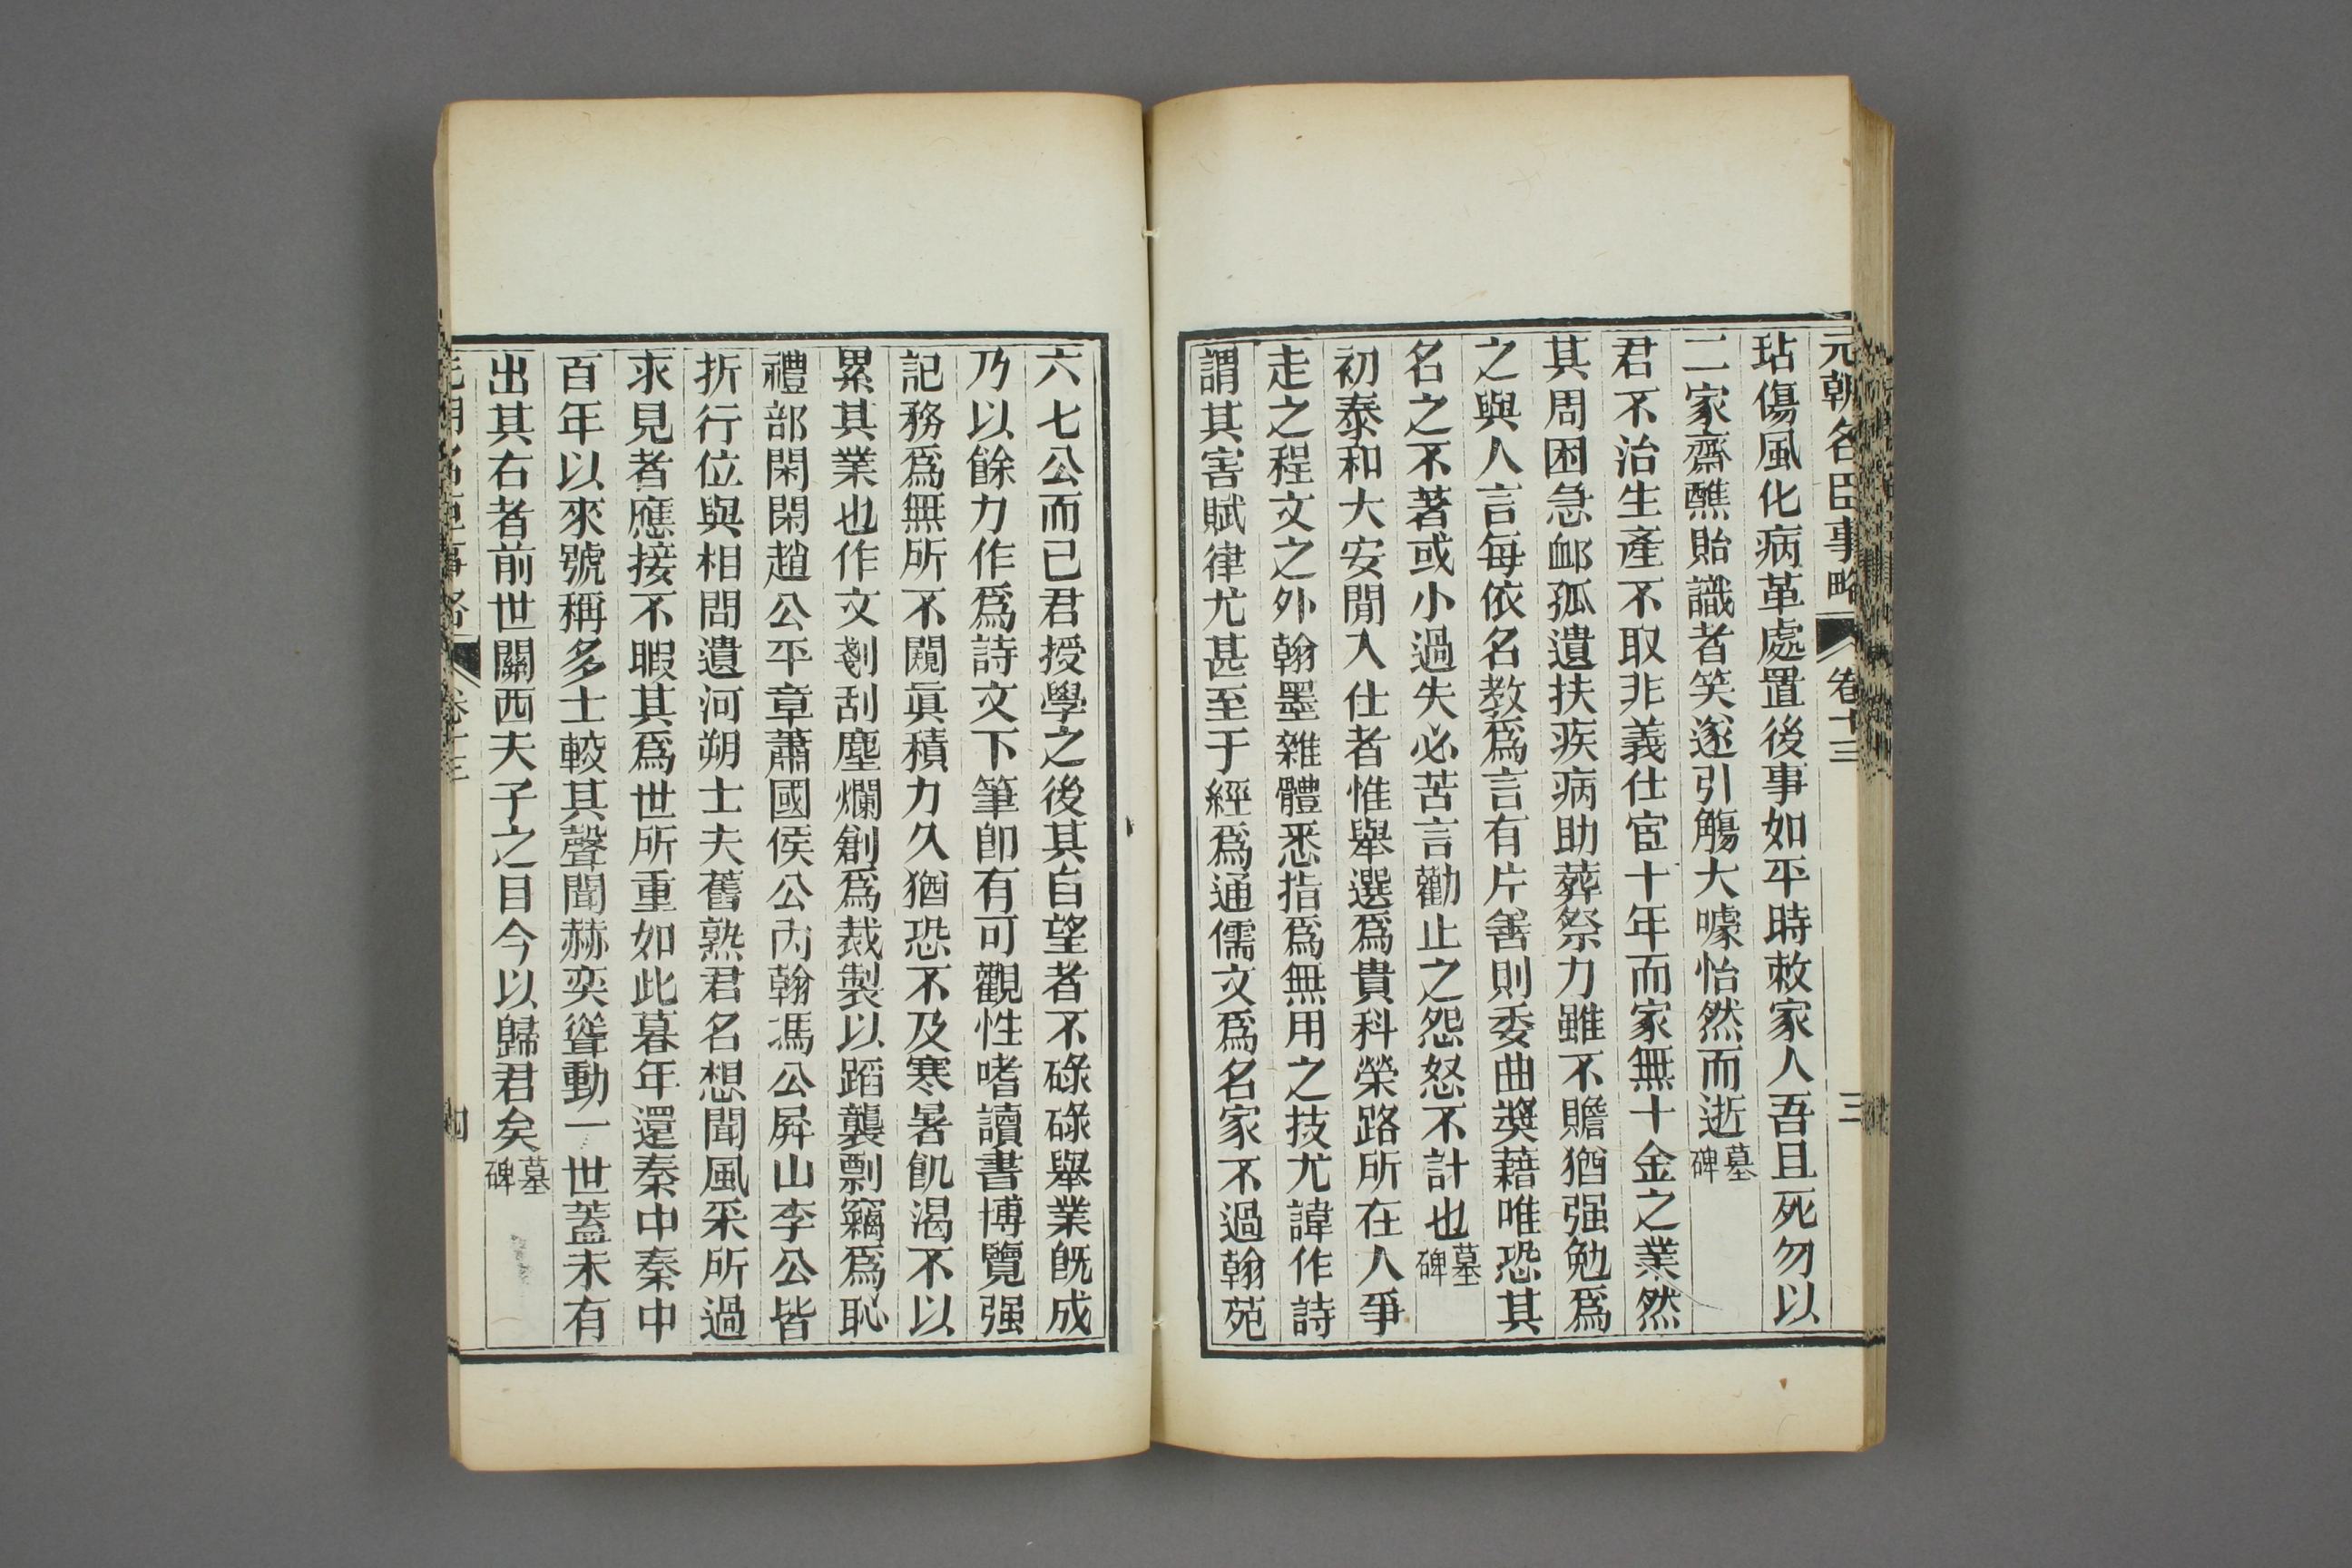 元朝名臣事略 卷十三 三
玷傷風化病革處置後事如平時敕家人吾且死勿以
二家齋醮貽識者笑遂引觴大噱怡然而逝墓碑
君不治生產不取非義仕宦十年而家無十金之業然
其周困急衈孤遺扶疾病助葬祭力雖不贍猶强勉爲
之與人言每依名教爲言有片善則委曲奬藉唯恐其
名之不著或小過失必苦言勸止之怨怒不計也墓碑
初泰和大安閒入仕者惟舉選爲貴科榮路所在人爭
走之程文之外翰墨雜體悉指爲無用之技尤諱作詩
謂其害賦律尤甚至于經爲通儒文爲名家不過翰苑
六七公而已君授學之後其自望者不碌碌舉業旣成
乃以餘力作爲詩文下筆卽有可觀性嗜讀書博覽强
記務爲無所不闚眞積力久猶恐不及寒暑飢渴不以
累其業也作文剷刮塵爛創爲裁製以蹈襲剽竊爲恥
禮部閑閑趙公平章蕭國侯公內翰馮公屏山李公皆
折行位與相問遺河朔士夫舊熟君名想聞風采所過
求見者應接不暇其爲世所重如此暮年還秦中秦中
百年以來號稱多士較其聲聞赫奕聳動一世蓋未有
出其右者前世關西夫子之目今以歸君矣墓碑
元朝名臣事略 卷十三 四